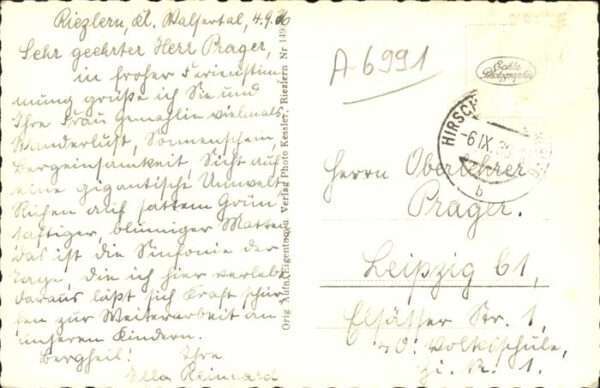 Riezlern, Kl. Walsertal, 4.9.36
Sehr geehrter Herr Prager,
in froher Ferienstim-
mung grüße ich Sie und
Ihre Frau Gemahlin vielmals.
Wanderlust, Sonnenschein,
Bergeinsamkeit, Sicht auf
eine gigantische Umwelt,
Ruhen auf sattem Grün
saftiger, blumiger Matten,
das ist die Sinfonie der
Tage, die ich hier verlebe,
daraus läßt sich Kraft schür-
fen zur Weiterarbeit an
unseren Kindern.
Bergheil! Ihre
Ella Reinhard
Orig. Aufn. Eigentum u. Verlag Photo Kessler, Riezlern Nr 149
A 6991
Echte
Photographie
HIRSCH
-6.IX.
b
Herrn Oberlehrer
Prager.
Leipzig C1,
Elsässer Str. 1,
40. Volksschule,